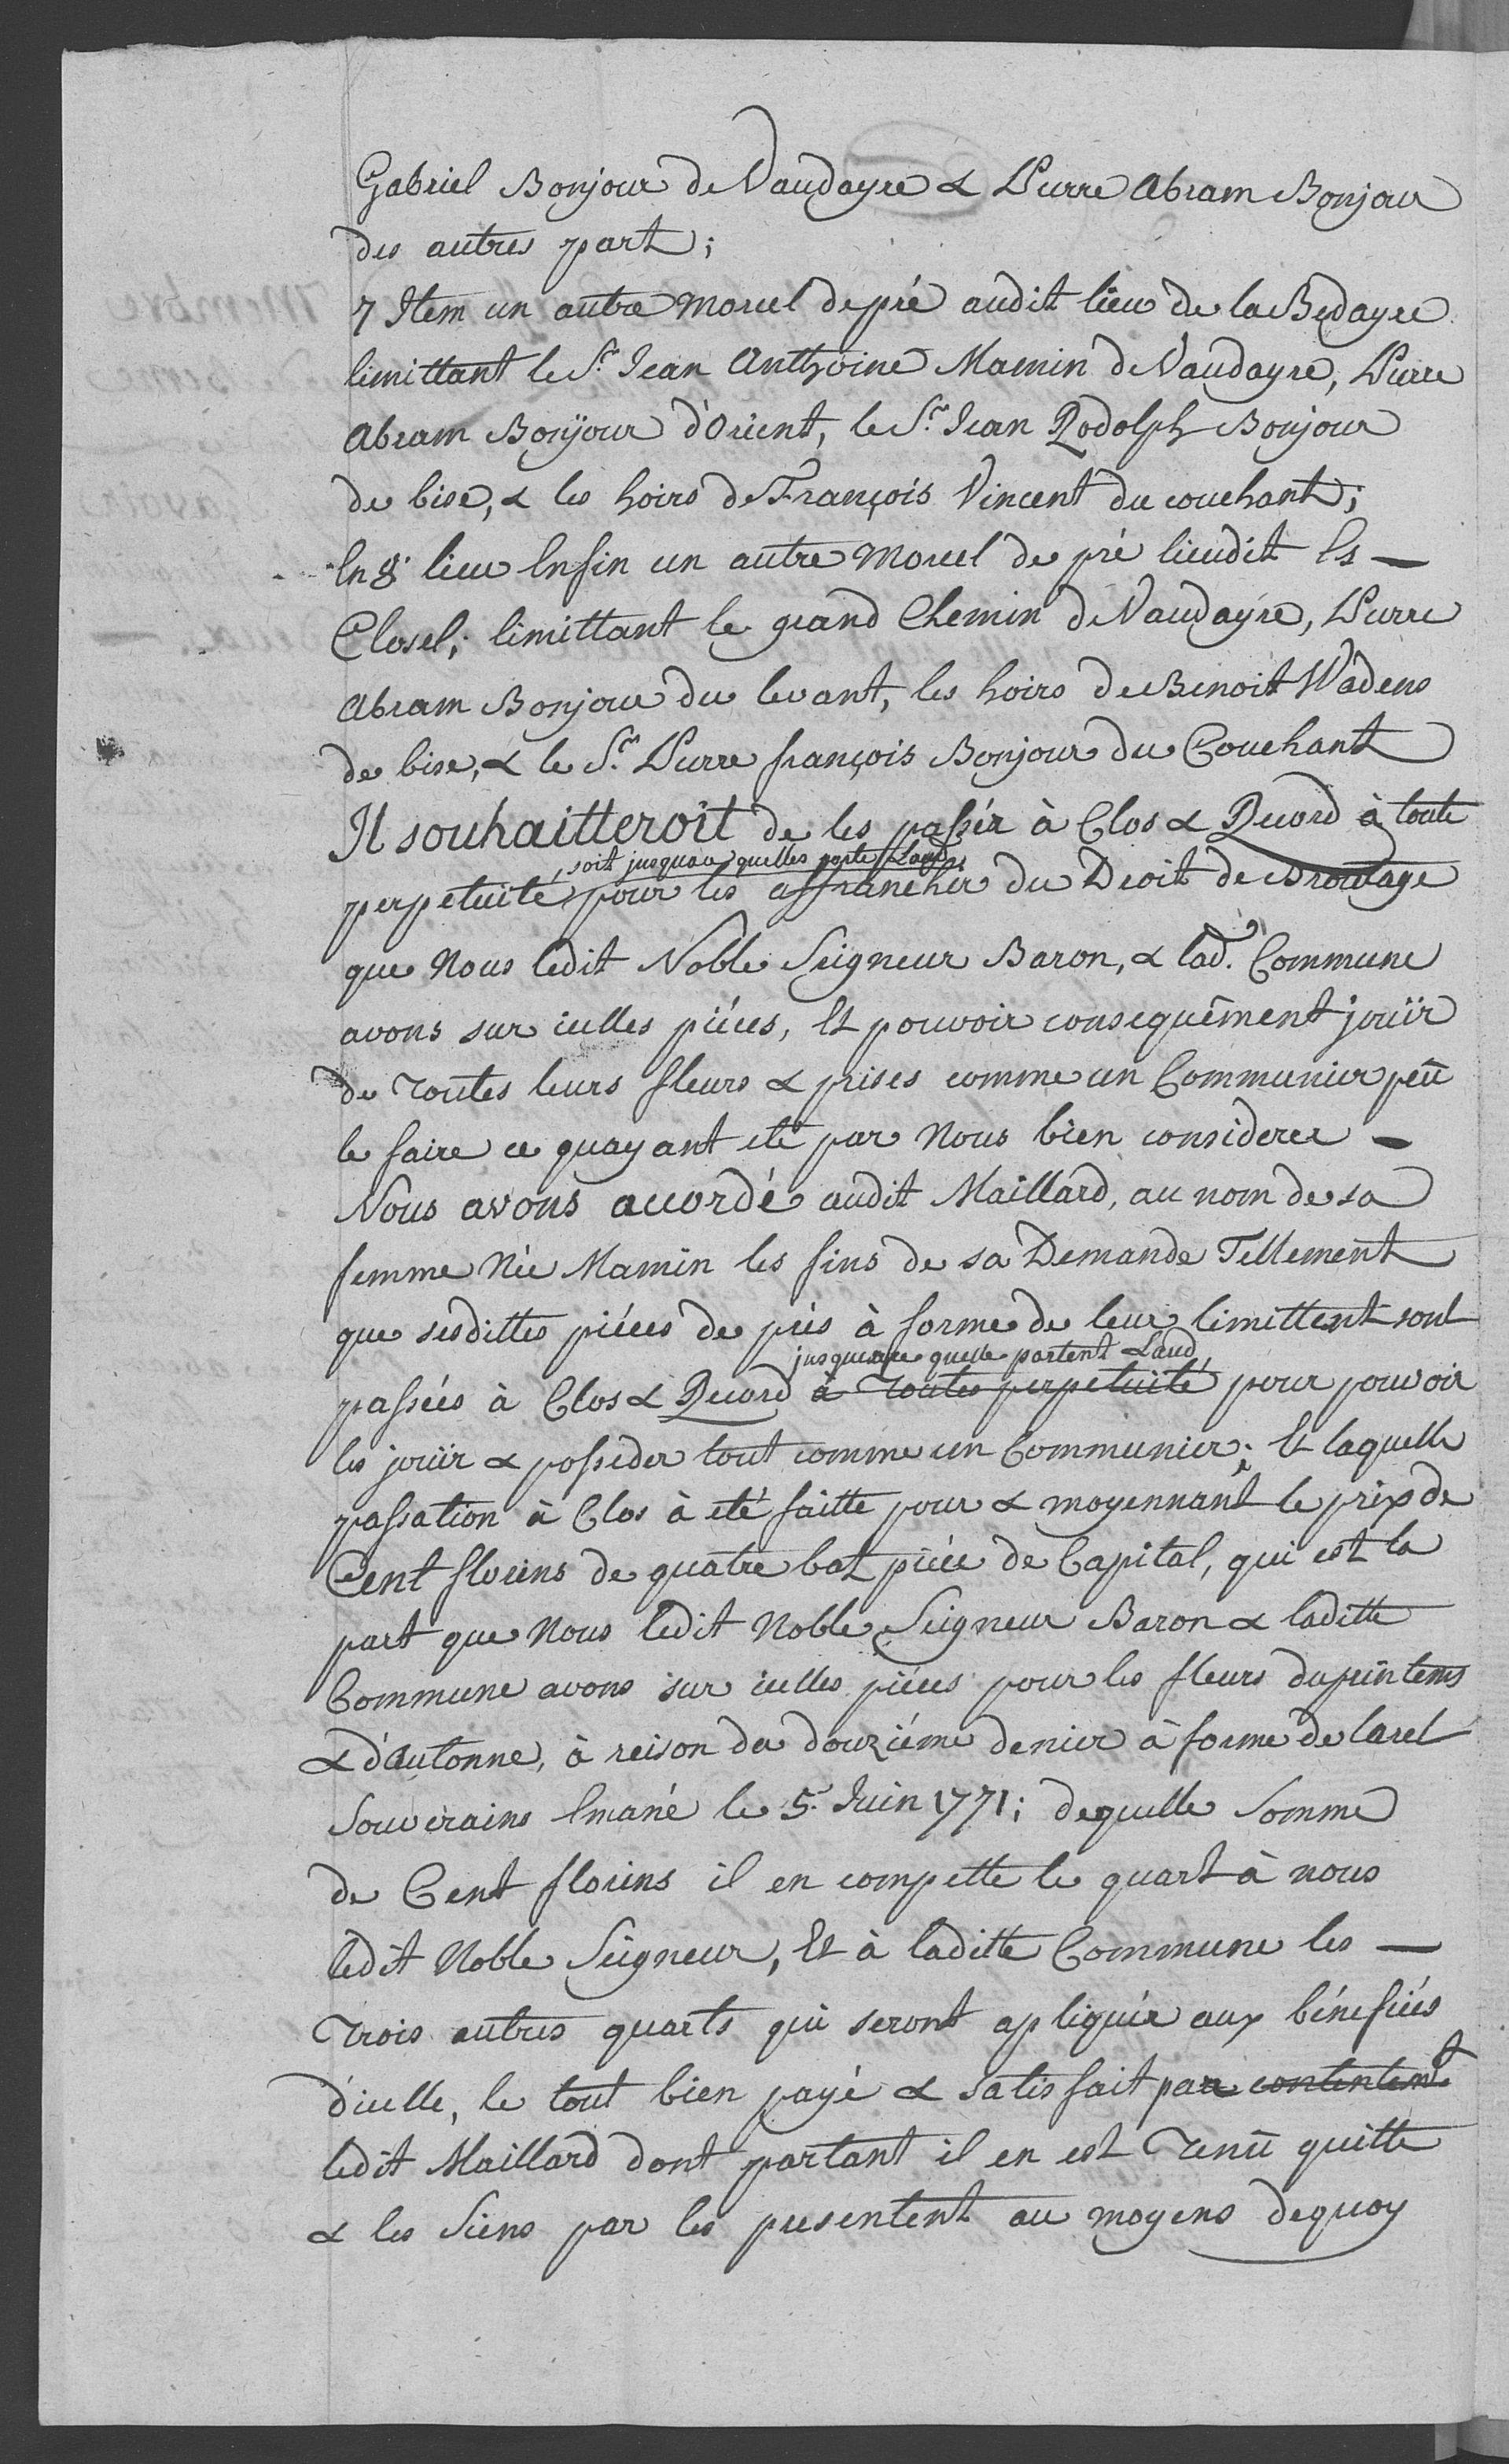 Gabriel Bonjour de Vaudayre & Pierre Abram Bonjour
des autres part;
7 Item un autre morcel de pré audit lieu de la Bedayre
limittant le Sr. Jean Anthoine Mamin de Vaudayre, Pierre
Abram Bonjour d'Orient, le Sr. Jean Rodolph Bonjour
de bise, & les hoirs de François Vincent du couchant;
En 8e lieu Enfin un autre morcel de pré lieudit Es —
Closel; limittant le grand Chemin de Vaudayre, Pierre
Abram Bonjour du levant, les hoirs de Benoit Wadens
de bise, & le Sr. Pierre françois Bonjour du Couchant
Il souhaitteroit de les passér à Clos & Record à toute
, soit jusquau quelles porte Laud,
perpetuité pour les affranchir du Droit de Broutage
que Nous ledit Noble Seigneur Baron, & lad. Commune
avons sur icelles piéces, Et pouvoir consequêment joüir
de toutes leurs fleurs & prises comme un Communier peû
le faire ce quayant eté par Nous bien considerer —
Nous avons accordé audit Maillard, au nom de sa
femme Née Mamin les fins de sa Demande Tellement
que sesdittes piéces de prés à forme de leur limittent sont
jusquace quelle portent Laud,
passées à Clos & Record à toutes perpetuité pour pouvoir
les joüir & posseder tout comme un Communier; Et laquelle
passation à Clos à eté faitte pour & moyennant le prix de
Cent florins de quatre batz piéce de Capital, qui est la
part que Nous ledit Noble Seigneur Baron & laditte
Commune avons sur icelles piéces pour les fleurs du printems
& d'Autonne, à reison du douziéme denier à forme de laret
Souverains Emané le 5e Juin 1771; dequelle Somme
de Cent florins il en compette le quart à nous
ledit Noble Seigneur, Et à laditte Commune les —
trois autres quarts qui seront apliquér aux bénéfices
d'icelle, le tout bien payé & satisfait par contentemt
ledit Maillard dont partant il en est tenû quitte
& les Siens par les presentent au moyens dequoy